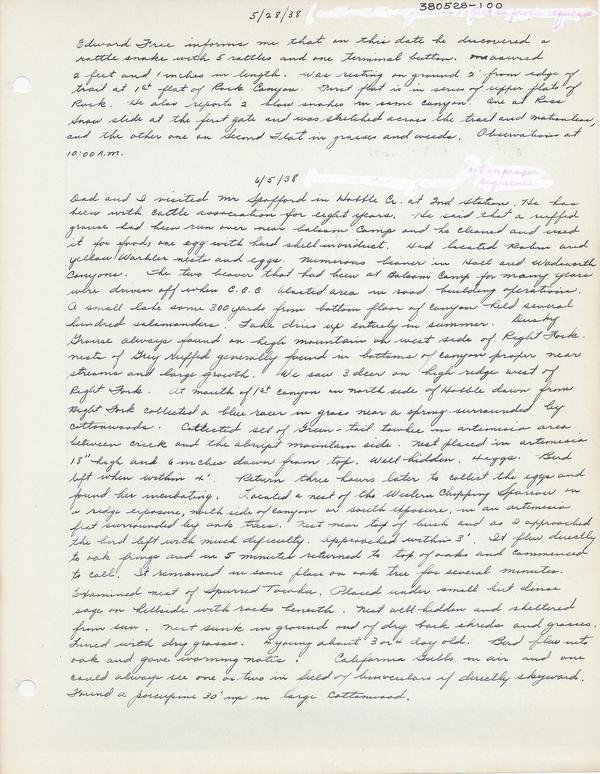 380528-100
5/28/38
Put in proper sequence
Edward Free informs me that on this date he discovered a
rattle snake with 5 rattles and one terminal button. measured
2 feet and 1 inches in length. Was resting on ground 2' from edge of
trail at 1st flat of Rock Canyon. First flat is in series of upper flats of
Rock. He also reports 2 blow snakes in same canyon. One at Ross
Snow slide at the first gate and was stretched across the trail and motionless,
and the other one on Second Flat in grasses and weeds. Observations at
10:00 A.M.
6/5/38
Put in proper
sequence
Dad and I visited Mr Spafford in Hobble Cr. at 2nd Station. He has
been with cattle association for eight years. He said that a ruffed
grouse had been run over near balsam Camp and he cleaned and used
it for food, one egg with hard shell in oviduct. Had located Robin and
yellow Warbler nests and eggs. Numerous beaver in Hall and Wadsworth
Canyons. The two beaver that had been at Balsam Camp for many years
were driven off when C.C.C. blasted area in road building operations.
A small lake some 300 yards from bottom floor of canyon held several
hundred salamanders. Lake dries up entirely in summer. Dusky
Grouse always found on high mountain on west side of Right Fork.
nests of Grey Ruffed generally found in bottoms of canyon proper near
streams and large growth. We saw 3 deer on high ridge west of
Right Fork. At mouth of 1st canyon on north side of Hobble down from
Right Fork collected a blue racer in grass near a spring surrounded by
cottonwoods. Collected set of Green-tail towhee in artemisia area
between creek and the abrupt mountain side. Nest placed in artemisia
18" high and 6 inches down from top. Well hidden. 4 eggs. Bird
left when within 4'. Return three hours later to collect the eggs and
found her incubating. Located a nest of the Western Chipping Sparrow on
a ridge exposure, north side of canyon or south exposure, in an artemisia
first surrounded by oak trees. Nest near top of bush and as I approached
the bird left with much dificulty. Approached within 3'. It flew directly
to oak fringe and in 5 minutes returned to top of oaks and commenced
to call. It remained in same place on oak tree for several minutes.
Examined nest of Spurred Towhee. Placed under small but dense
sage on hillside with rocks beneath. Nest well hidden and sheltered
from sun. Nest sunk in ground and of dry bark shreds and grasses.
Lined with dry grasses. 4 young about 3 or 4 day old. Bird flew into
oak and gave warning notes. California Gulls in air and one
could always see one or two in field of binoculars if directly skyward.
Found a porcupine 30' up in large Cottonwood.